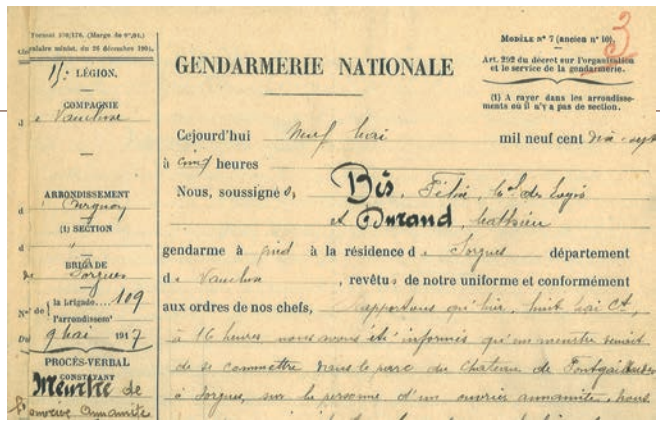 Format 210/270. (Marge de 0m,04.)
Circulaire minist. du 26 décembre 1901.
15e LÉGION.
COMPAGNIE
de Vaucluse
ARRONDISSEMENT
d'Avignon
(1) SECTION
d "
BRIGADE
de Sorgues
Nos de la brigade.... 109
l'arrondissemt
Du 9 mai 1917
PROCÈS-VERBAL
CONSTATANT
Meurtre de
annamite
MODÈLE no 7 (ancien no 10).
3
Art. 292 du décret sur l'organisation
et le service de la gendarmerie.
(1) A rayer dans les arrondisse-
ments où il n'y a pas de section.
GENDARMERIE NATIONALE
Cejourd'hui neuf mai mil neuf cent dix-sept
à cinq heures
Nous, soussignés, Bis, Félix, Mal des Logis
et Durand, Mathieu
gendarme à pied à la résidence de Sorgues département
de Vaucluse, revêtus de notre uniforme et conformément
aux ordres de nos chefs, rapportons qu'hier, huit mai Ct,
à 16 heures nous avons été informés qu'un meurtre venait
de se commettre dans le parc du Chateau de
à Sorgues, sur la personne d'un ouvrier annamite. Nous